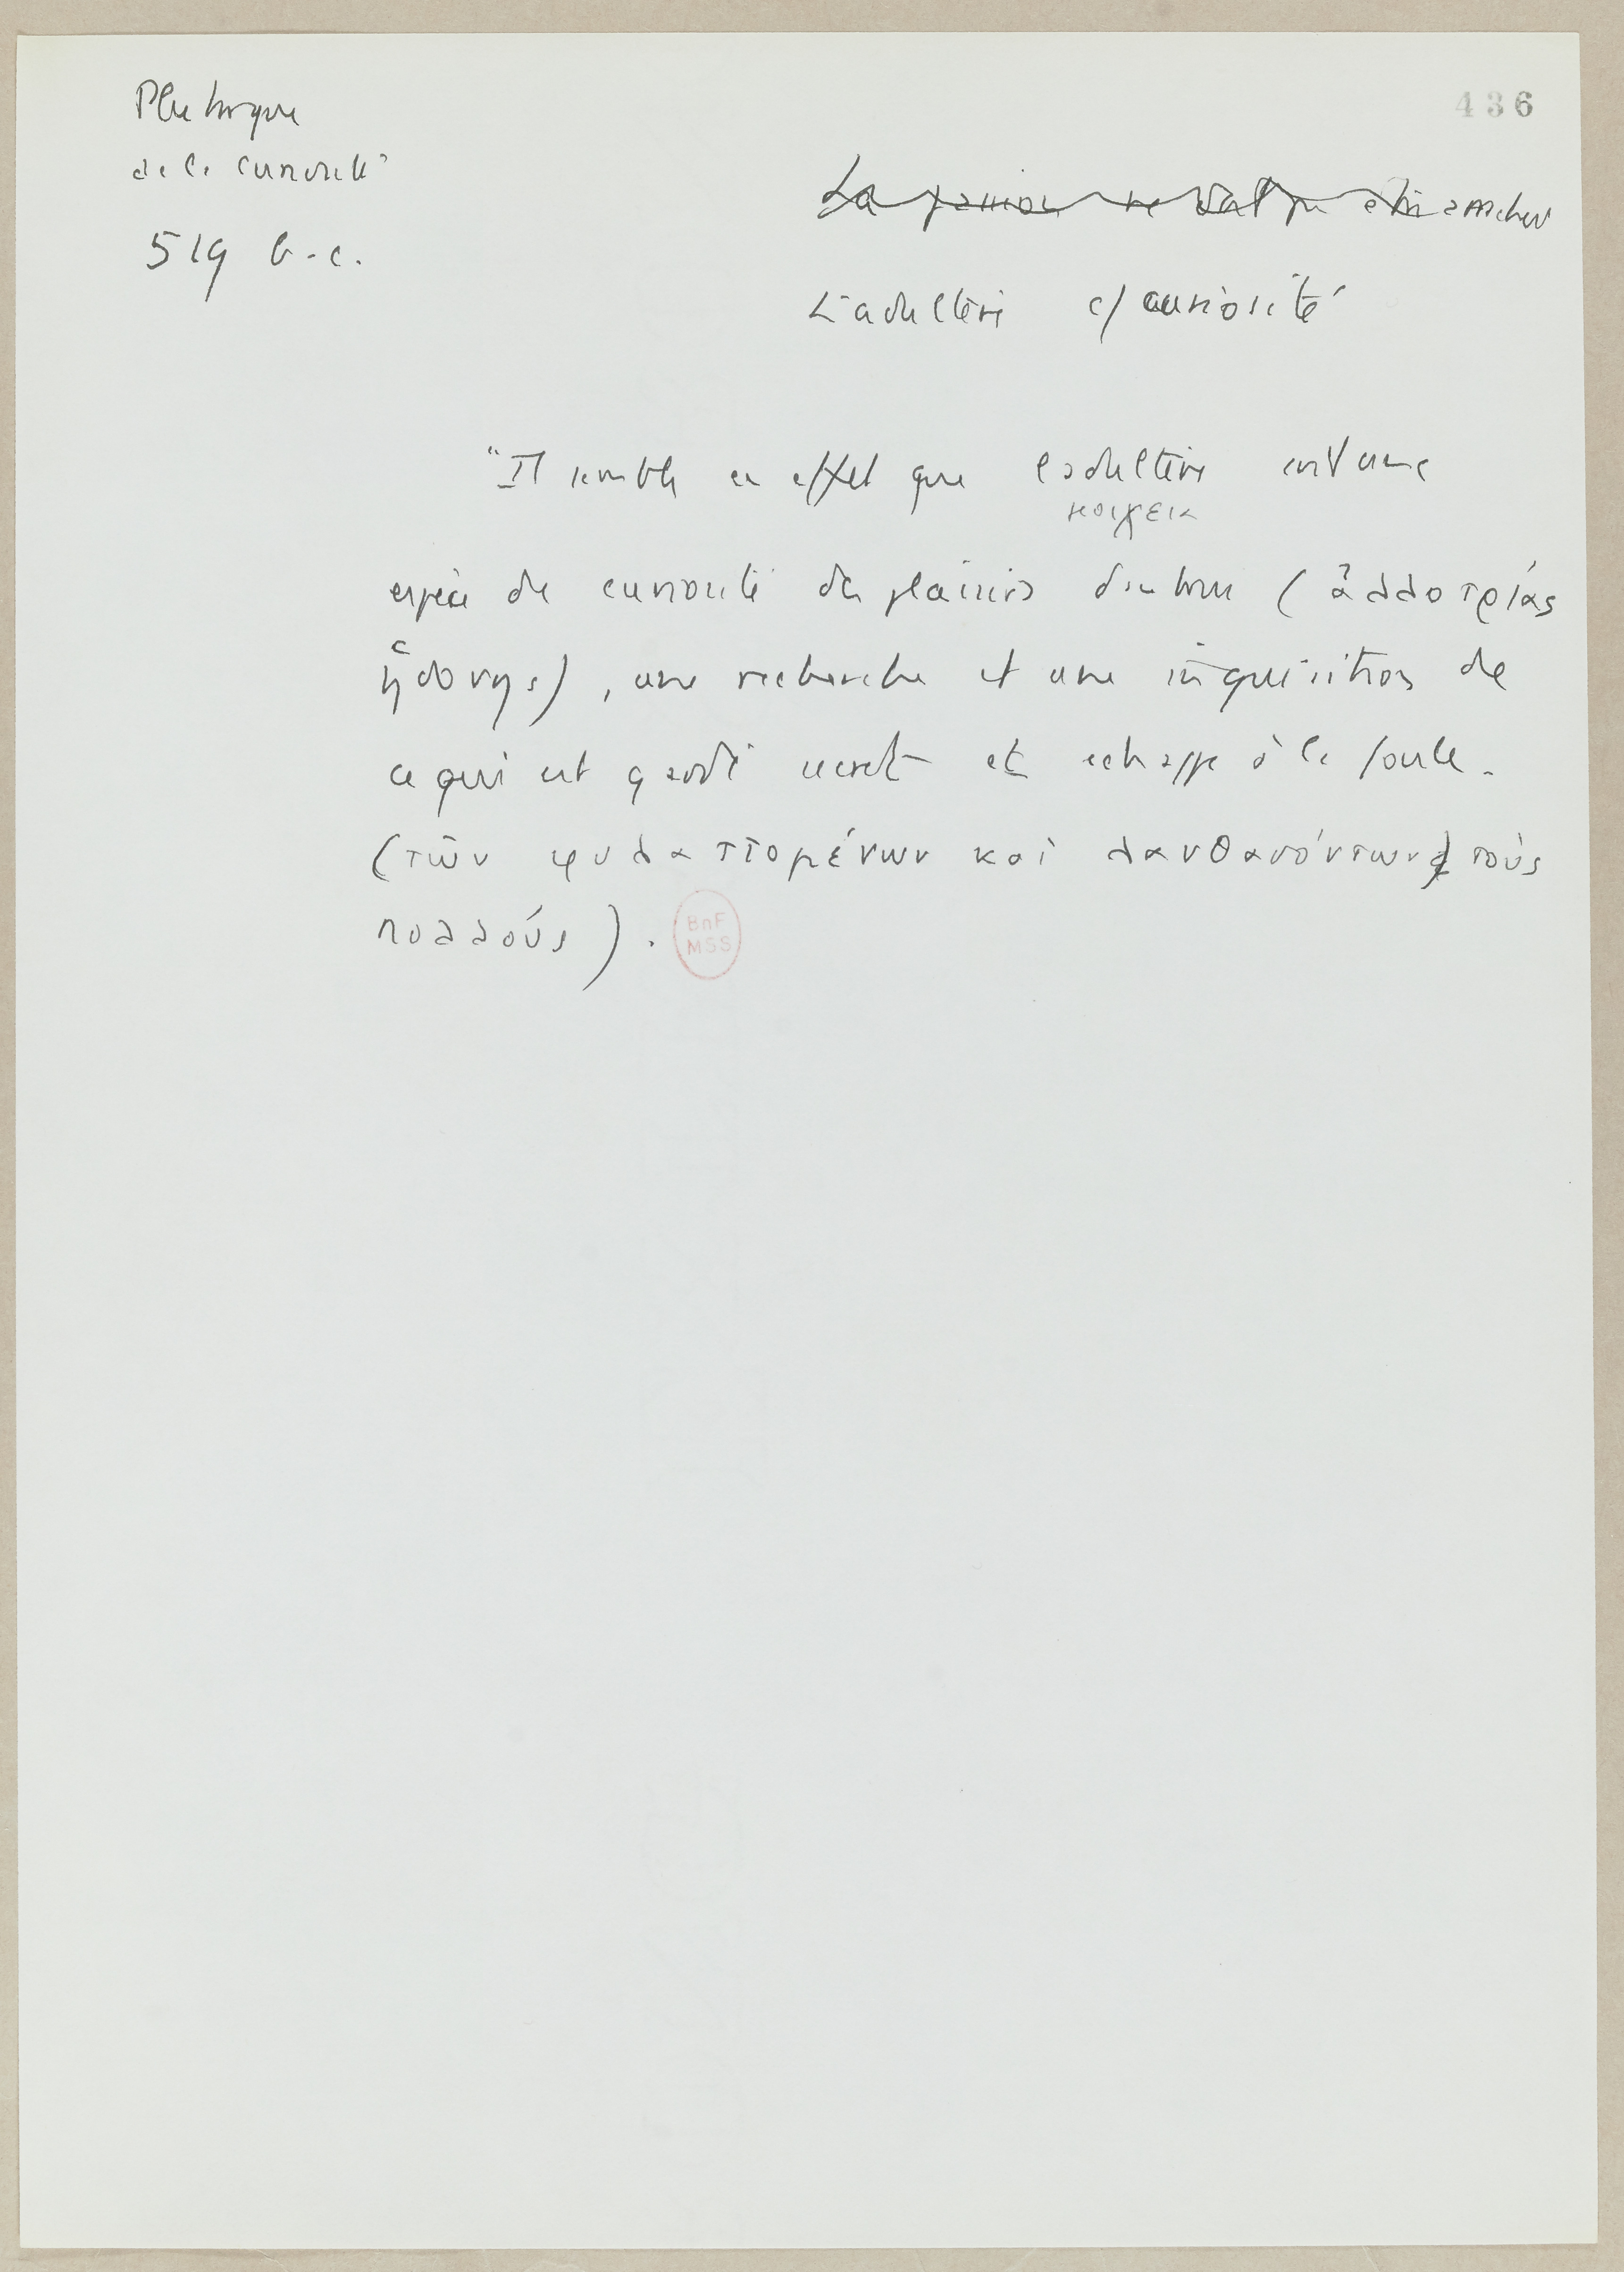 Plutarque
de la curiosité
519 b-c.
436
La passion ne doit pas être
L'adultère c/ curiosité
"Il semble en effet que l'adultère soit une
μοιχεια
espèce de curiosité du plaisir d'autrui (ἀλλοτρίας
ἡδονης), une recherche et une inquisition de
ce qui est gardé secret et échappe à la foule.
(τῶν φυλαττομένων καὶ λανθανόντων τοὺς
πολλούς).
BnF
MSS